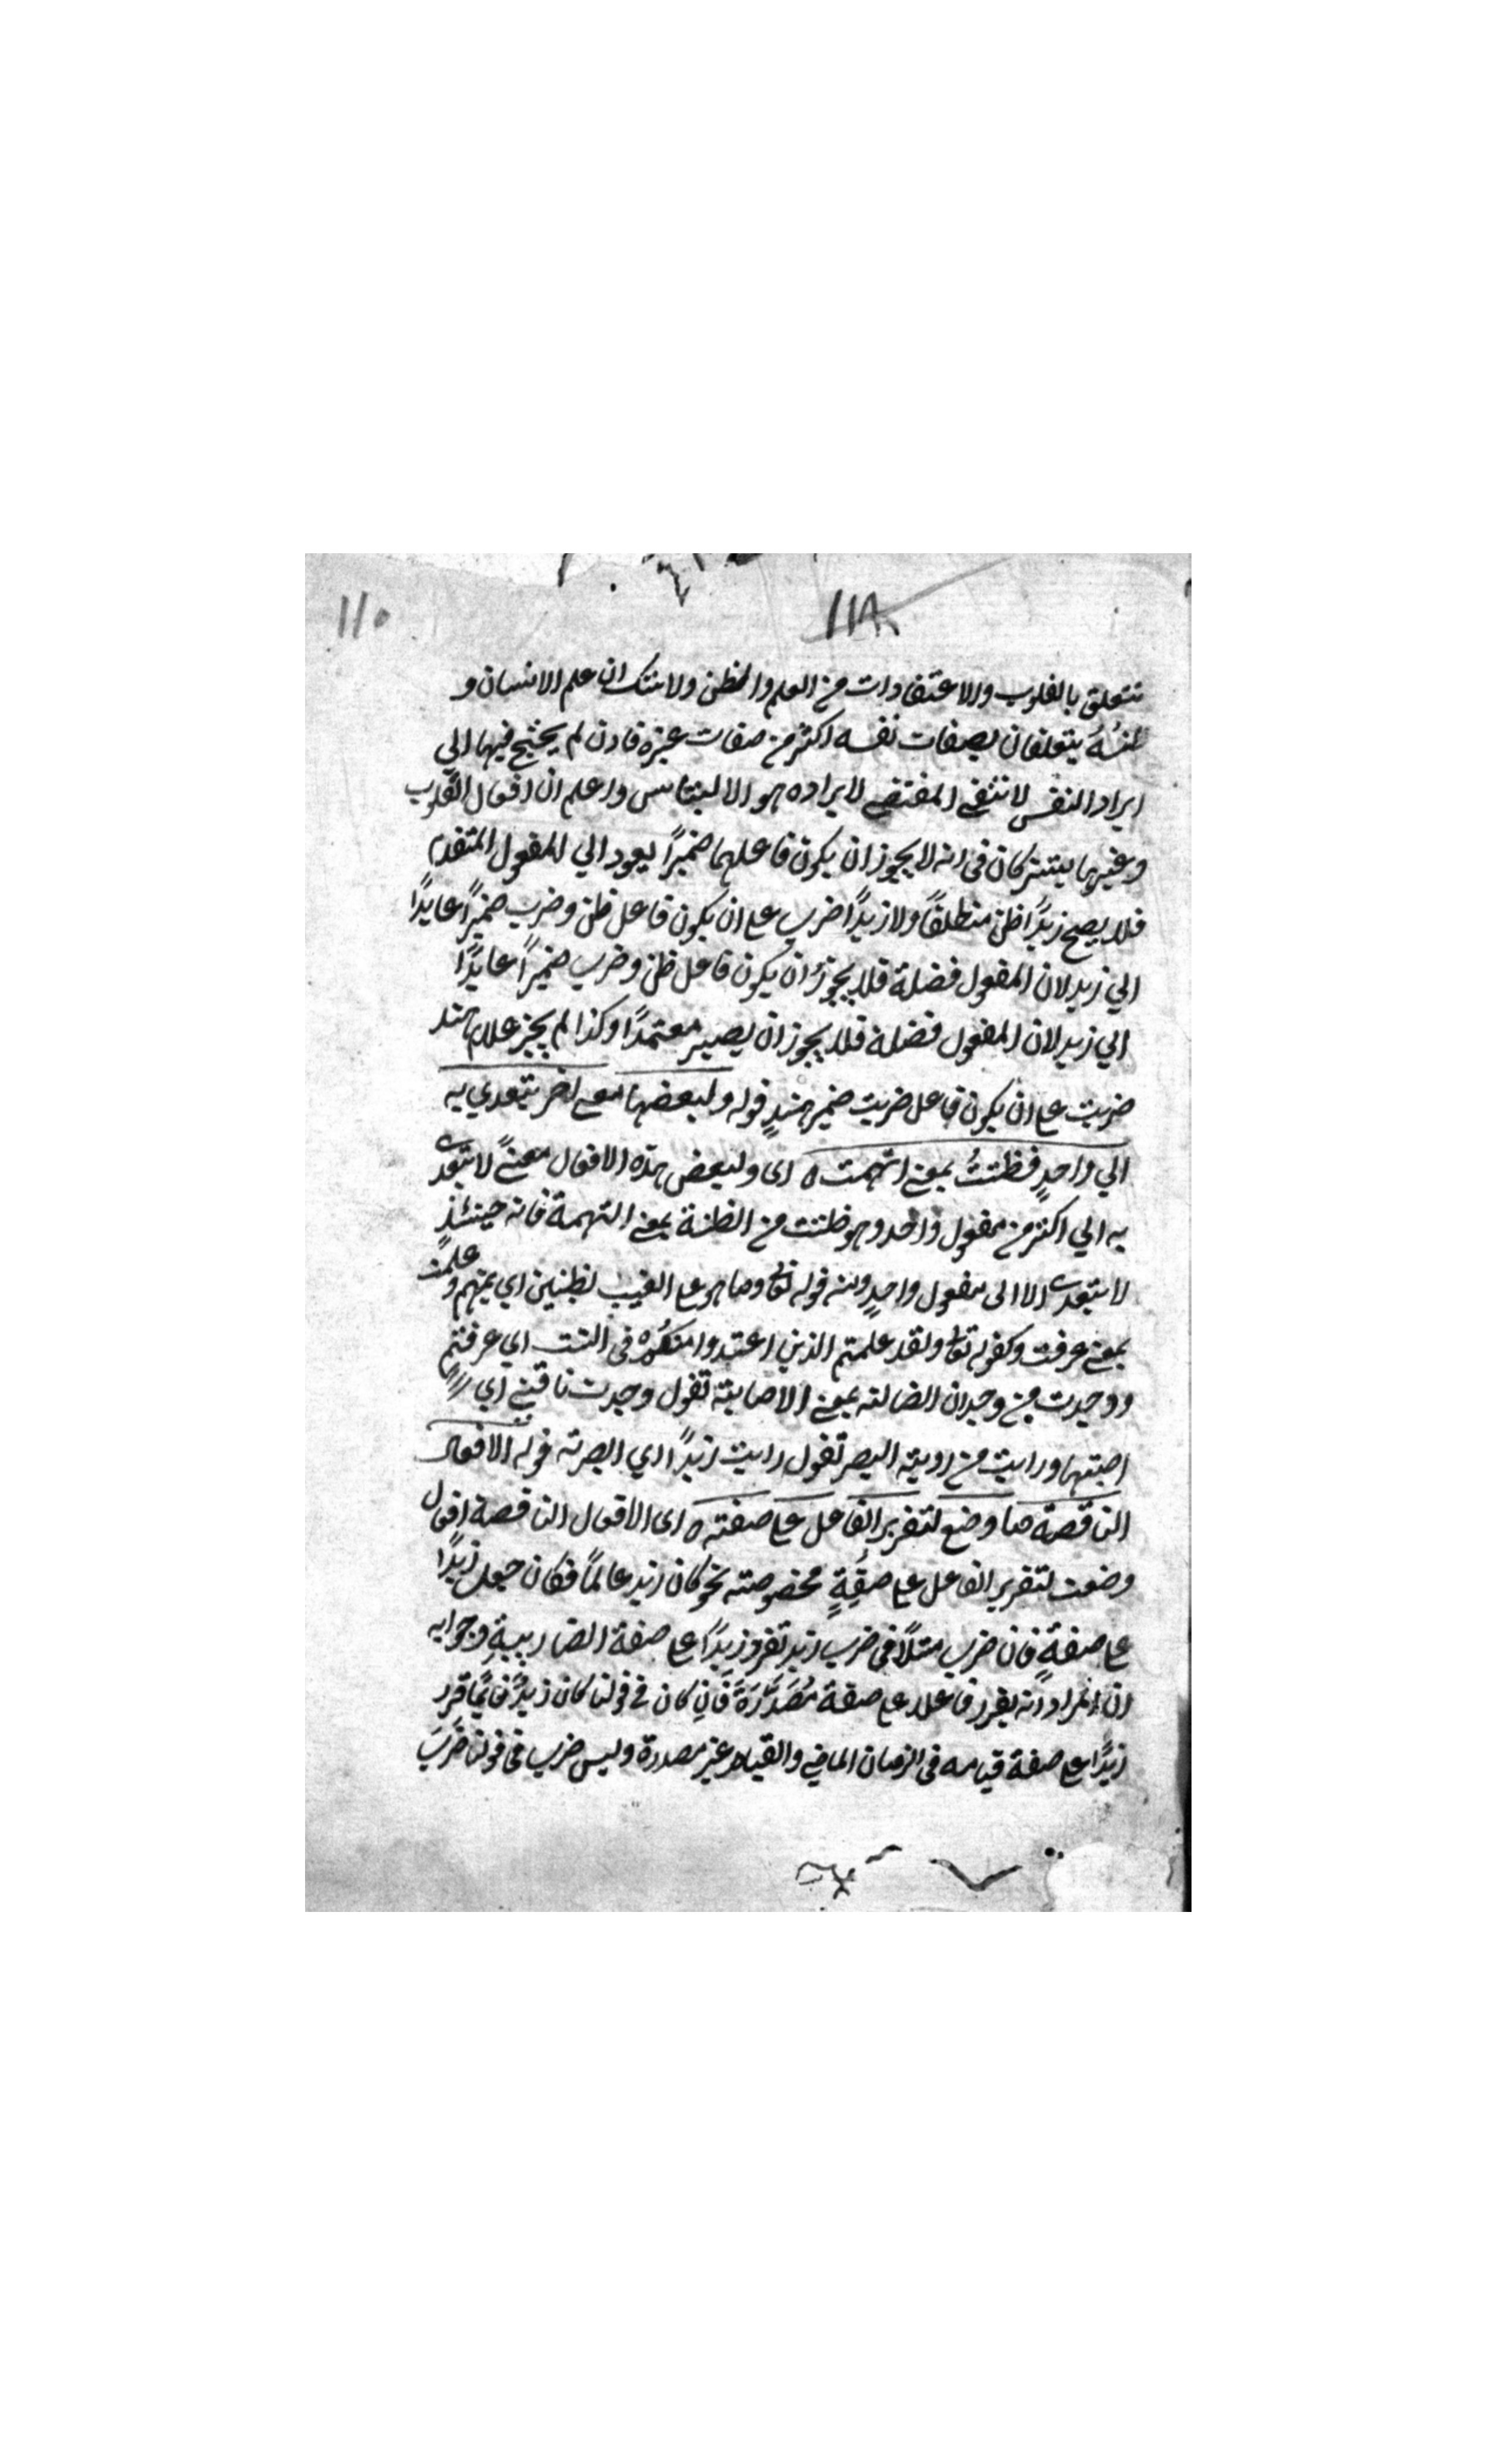 ١١٨ ١١٥
تتعلق بالقلوب والاعتقادات من العلم والظن ولا شك ان علم الانسان و
ظنهُ يتعلقان بصفات نفسه اكثر من صفات غيره فاذن لم يحتج فيها الي
ايراد النفس لا نتفي المقتضي لايراده هو الالبتاس واعلم ان افعال القلوب
وغيرها يشتركان في انه لا يجوز ان يكون فاعلهما ضميرًا يعود الي المفعول المتقدم
فلا يصح زيدًا ظن منطلقًا ولا زيدًا ضرب علي ان يكون فاعل ظن وضرب ضميرًا عايدًا
الي زيد لان المفعول فضلة فلا يجوز ان يكون فاعل ظن وضرب ضميرًا عايدًا
الي زيد لان المفعول فضلة فلا يجوز ان يصير معتمدًا وكذا لم يجز غلام هند
ضربت علي ان يكون فاعل ضربت ضمير هندٍ قوله ولبعضها معني اخر يتعدي به
الي واحدٍ فظننتُ بمعني اتهمت ه اى ولبعض هذه الافعال معنيً لا يتعدى
به الي اكثر من مفعول واحد وهو ظننت من الظنة بمعني التهمة فانه حينئذٍ
لا يتعدى الا الى مفعول واحدٍ ومنه قوله تعالي وما هو علي الغيب بظنين اي بمتهم و علمت
بمعني عرفت وكقوله تعالي ولقد علمتم الذين اعتدوا منكم في السبت اي عرفتم
ووجدت من وجدان الضالته بمعني الاصابته تقول وجدت ناقتي اي
اصبتها ورايت من رويته البصر تقول رايت زيدًا اي ابصرته قوله الافعال
الناقصة ما وضع لتقرير الفاعل علي صفته ه اى الافعال الناقصة افعال
وضعت لتقرير الفاعل علي صفةٍ مخصوصته نحو كان زيد عالمًا فكان جعل زيدًا
علي صفةٍ فان ضرب مثلًا في ضرب زيد تقرر زيدًا علي صفة الضاربيةِ وجوابه
ان المراد انه يقرر فاعلا علي صفة مُصَدَّرَةً فان كان في قولنا كان زيدٌ قائمًا قرر
زيدًا علي صفة قيامه في الزمان الماضي والقيام غير مصدرة وليس ضرب في قولنا ضَرَبَ